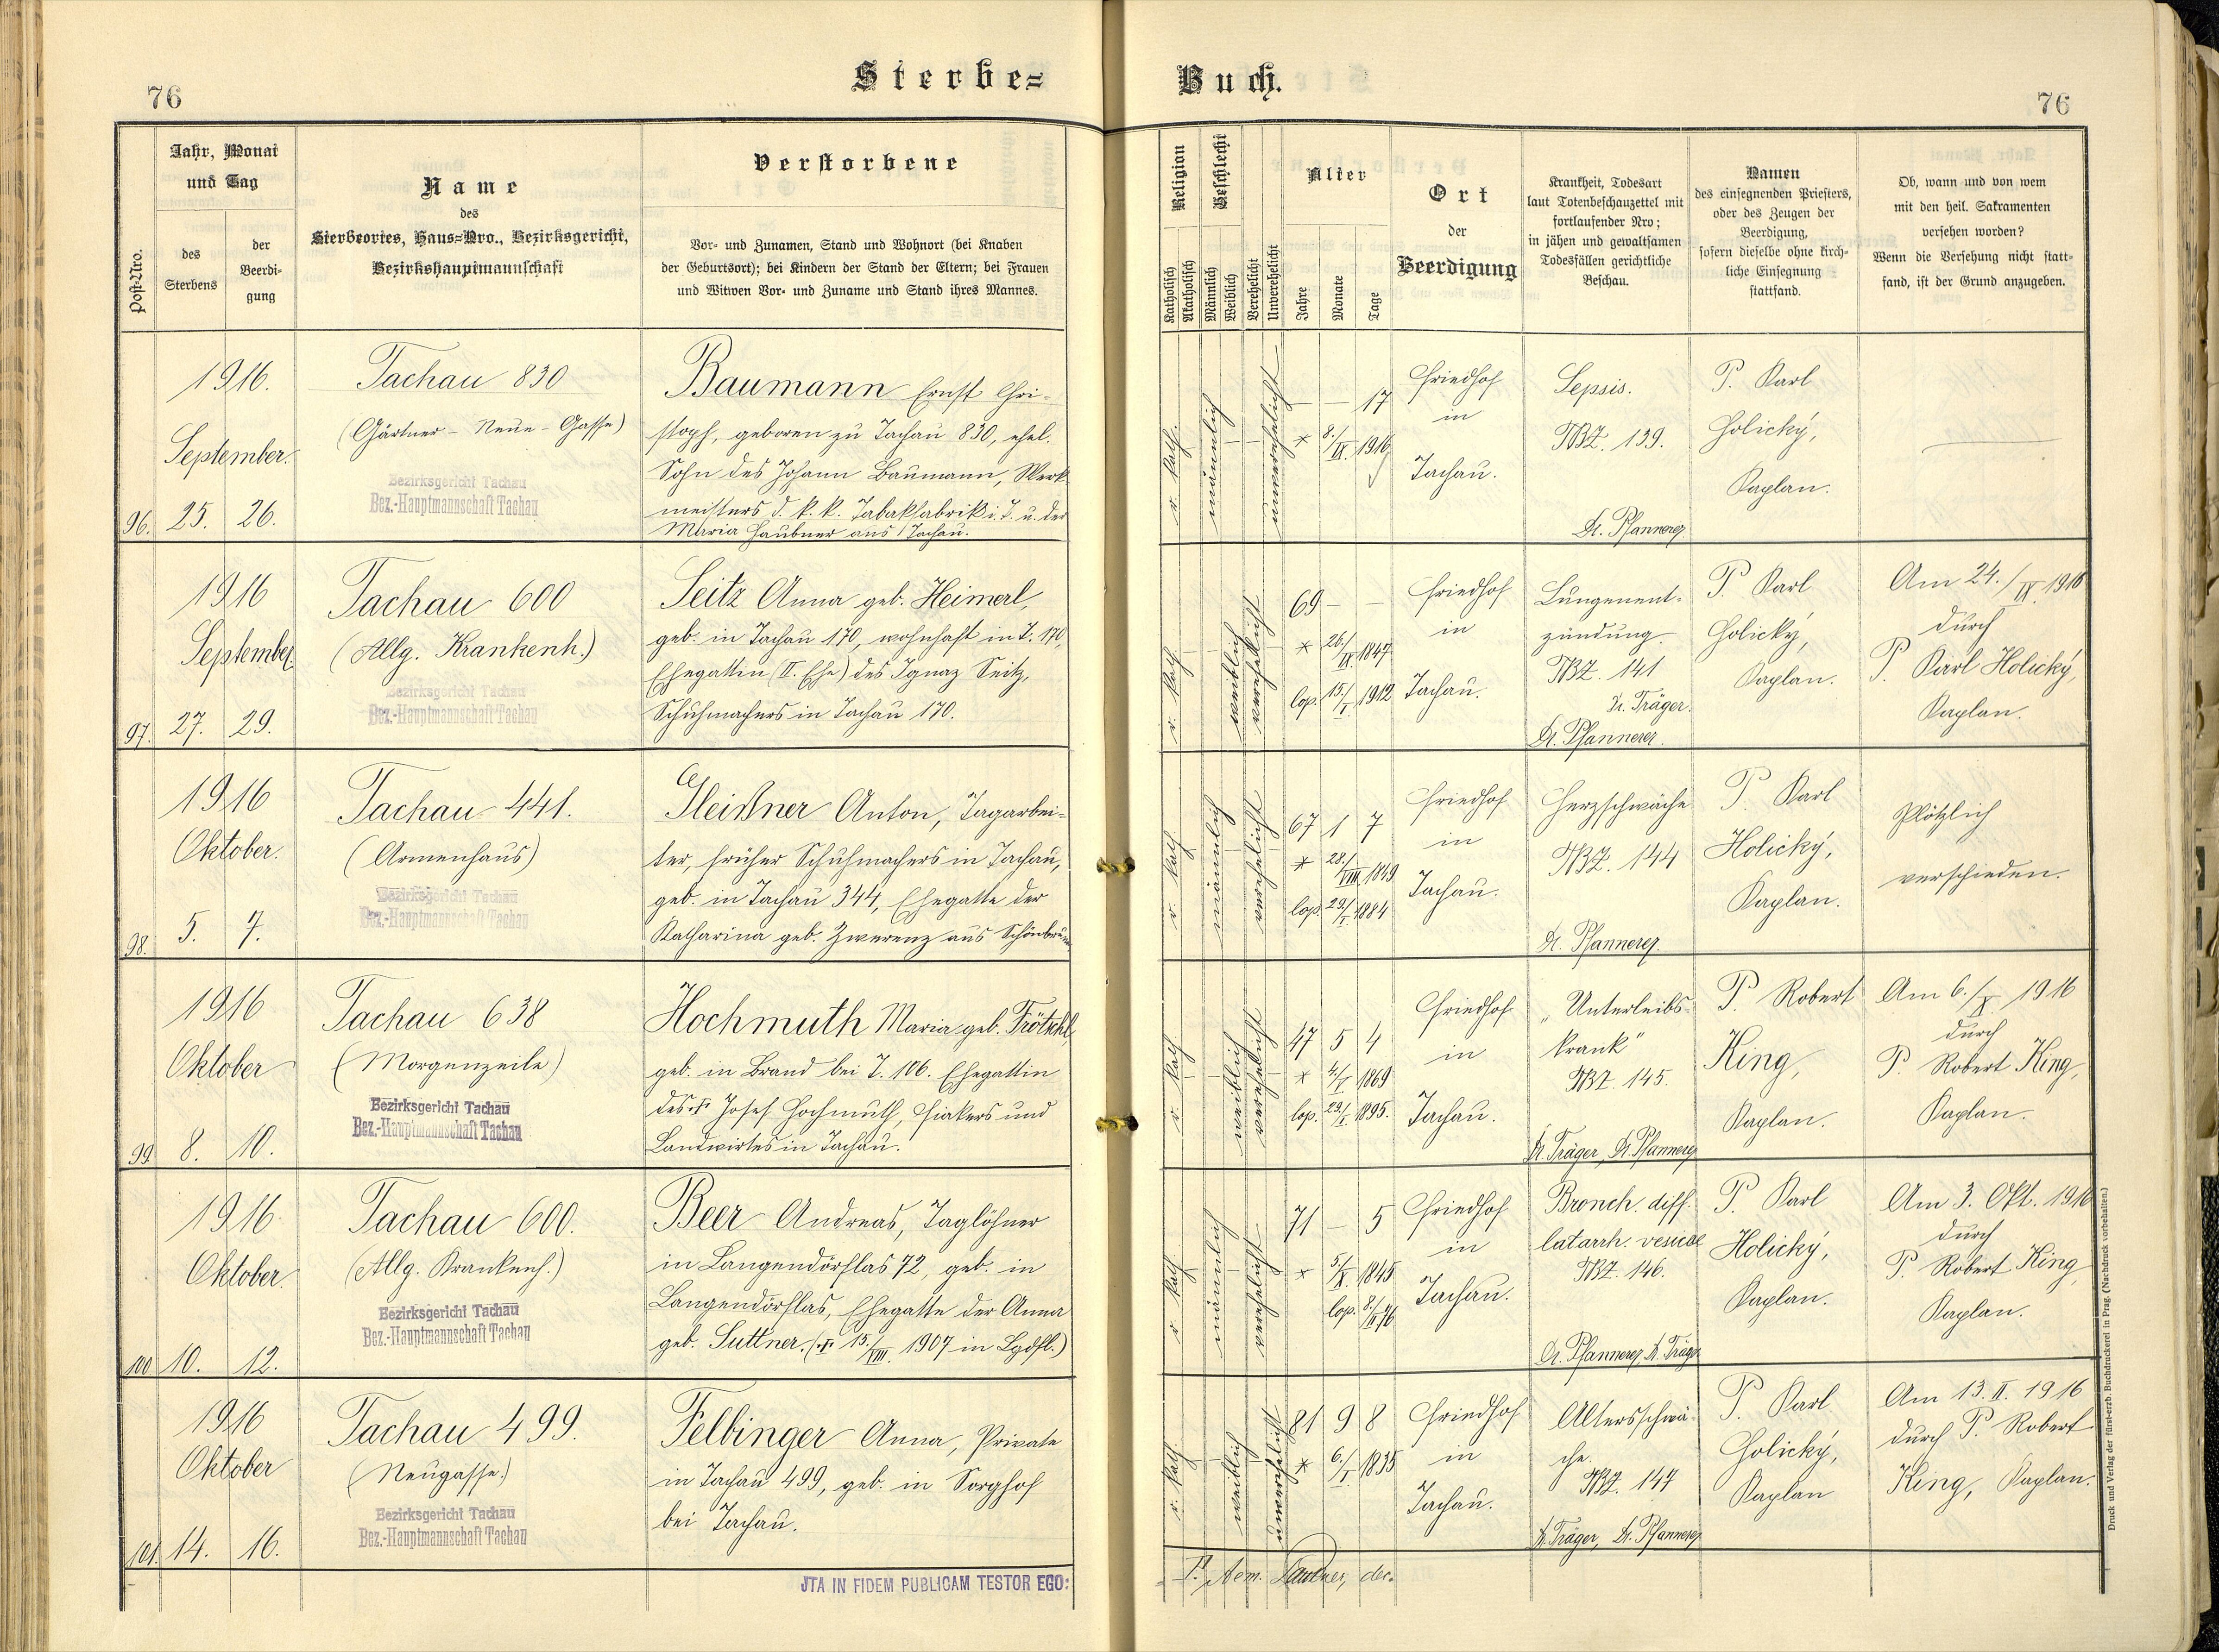 76
Sterbe=
Buch.
76
Post-Nro.
Jahr, Monat
und Tag
des
Sterbens
der
Beerdi-
gung
Name
des
Sterbeortes, Haus=Nro., Bezirksgericht,
Bezirkshauptmannschaft
Verstorbene
Vor- und Zunamen, Stand und Wohnort (bei Knaben
der Geburtsort); bei Kindern der Stand der Eltern; bei Frauen
und Witwen Vor- und Zuname und Stand ihres Mannes.
Religion
Katholisch
Akatholisch
Geschlecht
Männlich
Weiblich
Verehelicht
Unverehelicht
Alter
Jahre
Monate
Tage
Ort
der
Beerdigung
Krankheit, Todesart
laut Totenbeschauzettel mit
fortlaufender Nro;
in jähen und gewaltsamen
Todesfällen gerichtliche
Beschau.
Namen
des einsegnenden Priesters,
oder des Zeugen der
Beerdigung,
sofern dieselbe ohne kirch-
liche Einsegnung
stattfand.
Ob, wann und von wem
mit den heil. Sakramenten
versehen worden?
Wenn die Versehung nicht statt-
fand, ist der Grund anzugeben.
96.
1916.
September.
25. 26.
Tachau 830
(Gärtner - Neue - Gasse)
Bezirksgericht Tachau
Bez.-Hauptmannschaft Tachau
Baumann Ernst Chri-
stoph, geboren zu Tachau 830, ehel.
Sohn des Johann Baumann, Werk-
meisters d. k. k. Tabakfabrik i. T. u. der
Maria Haubner aus Tachau.
r. kath.
männlich
unverehelicht
— — 17
* 8./IX. 1916
Friedhof
in
Tachau.
Sepsis.
TBZ. 139.
Dr. Pfannerer
P. Karl
Holický,
Kaplan.
97.
1916
September
27. 29.
Tachau 600
(Allg. Krankenh.)
Bezirksgericht Tachau
Bez.-Hauptmannschaft Tachau
Seitz Anna geb. Heimerl,
geb. in Tachau 170, wohnhaft in T. 170,
Ehegattin (II. Ehe) des Ignaz Seitz,
Schuhmachers in Tachau 170.
r. kath
weiblich
verehelicht
69 — —
* 26./IX. 1847
cop. 15./I. 1912
Friedhof
in
Tachau.
Lungenent-
zündung.
TBZ. 141
Dr. Träger.
Dr. Pfannerer.
P. Karl
Holický,
Kaplan.
Am 24./IX. 1916
durch
P. Karl Holický,
Kaplan.
98.
1916
Oktober.
5. 7.
Tachau 441.
(Armenhaus)
Bezirksgericht Tachau
Bez.-Hauptmannschaft Tachau
Gleißner Anton, Tagarbei-
ter, früher Schuhmachers in Tachau,
geb. in Tachau 344, Ehegatte der
Katharina geb. Zwerenz aus Schönbrunn
r. kath
männlich
verehelicht
67 1 7
* 28./VIII. 1849
cop. 29./I. 1884
Friedhof
in
Tachau.
Herzschwäche
TBZ. 144
Dr. Pfannerer.
P. Karl
Holický,
Kaplan.
Plötzlich
verschieden.
99.
1916
Oktober
8. 10.
Tachau 638
(Morgenzeile)
Bezirksgericht Tachau
Bez.-Hauptmannschaft Tachau
Hochmuth Maria geb. Trötschl,
geb. in Brand bei T. 106. Ehegattin
des † Josef Hochmuth, Fiakers und
Landwirtes in Tachau.
r. kath
weiblich
verehelicht
47 5 4
* 4./V. 1869
cop. 29./I. 1895.
Friedhof
in
Tachau.
„Unterleibs-
krank"
TBZ. 145.
Dr. Träger, Dr. Pfannerer
P. Robert
King,
Kaplan.
Am 6./X. 1916
durch
P. Robert King,
Kaplan.
100
1916.
Oktober.
10. 12.
Tachau 600.
(Allg. Krankenh.)
Bezirksgericht Tachau
Bez.-Hauptmannschaft Tachau
Beer Andreas, Taglöhner
in Langendörflas 72, geb. in
Langendörflas, Ehegatte der Anna
geb. Suttner. († 15./VIII. 1907 in Lgdfl.)
r. kath
männlich
verehelicht
71 — 5
* 5/X. 1845
cop. 8./II. 76
Friedhof
in
Tachau.
Bronch. diff.
Catarrh. vesicae
TBZ. 146.
Dr. Pfannerer, Dr. Träger
P. Karl
Holický,
Kaplan.
Am 3. Okt. 1916
durch
P. Robert King,
Kaplan.
101.
1916
Oktober
14. 16.
Tachau 499.
(Neugasse.)
Bezirksgericht Tachau
Bez.-Hauptmannschaft Tachau
Felbinger Anna, Private
in Tachau 499, geb. in Sorghof
bei Tachau.
r. kath
weiblich
unverehelicht
81 9 8
* 6./I. 1835
Friedhof
in
Tachau.
Altersschwä-
che.
TBZ. 147
Dr. Träger, Dr. Pfannerer
P. Karl
Holický,
Kaplan
Am 13. II. 1916
durch P. Robert
King, Kaplan.
JTA IN FIDEM PUBLICAM TESTOR EGO:
dec.
Druck und Verlag der fürst-erzb. Buchdruckerei in Prag. (Nachdruck vorbehalten.)